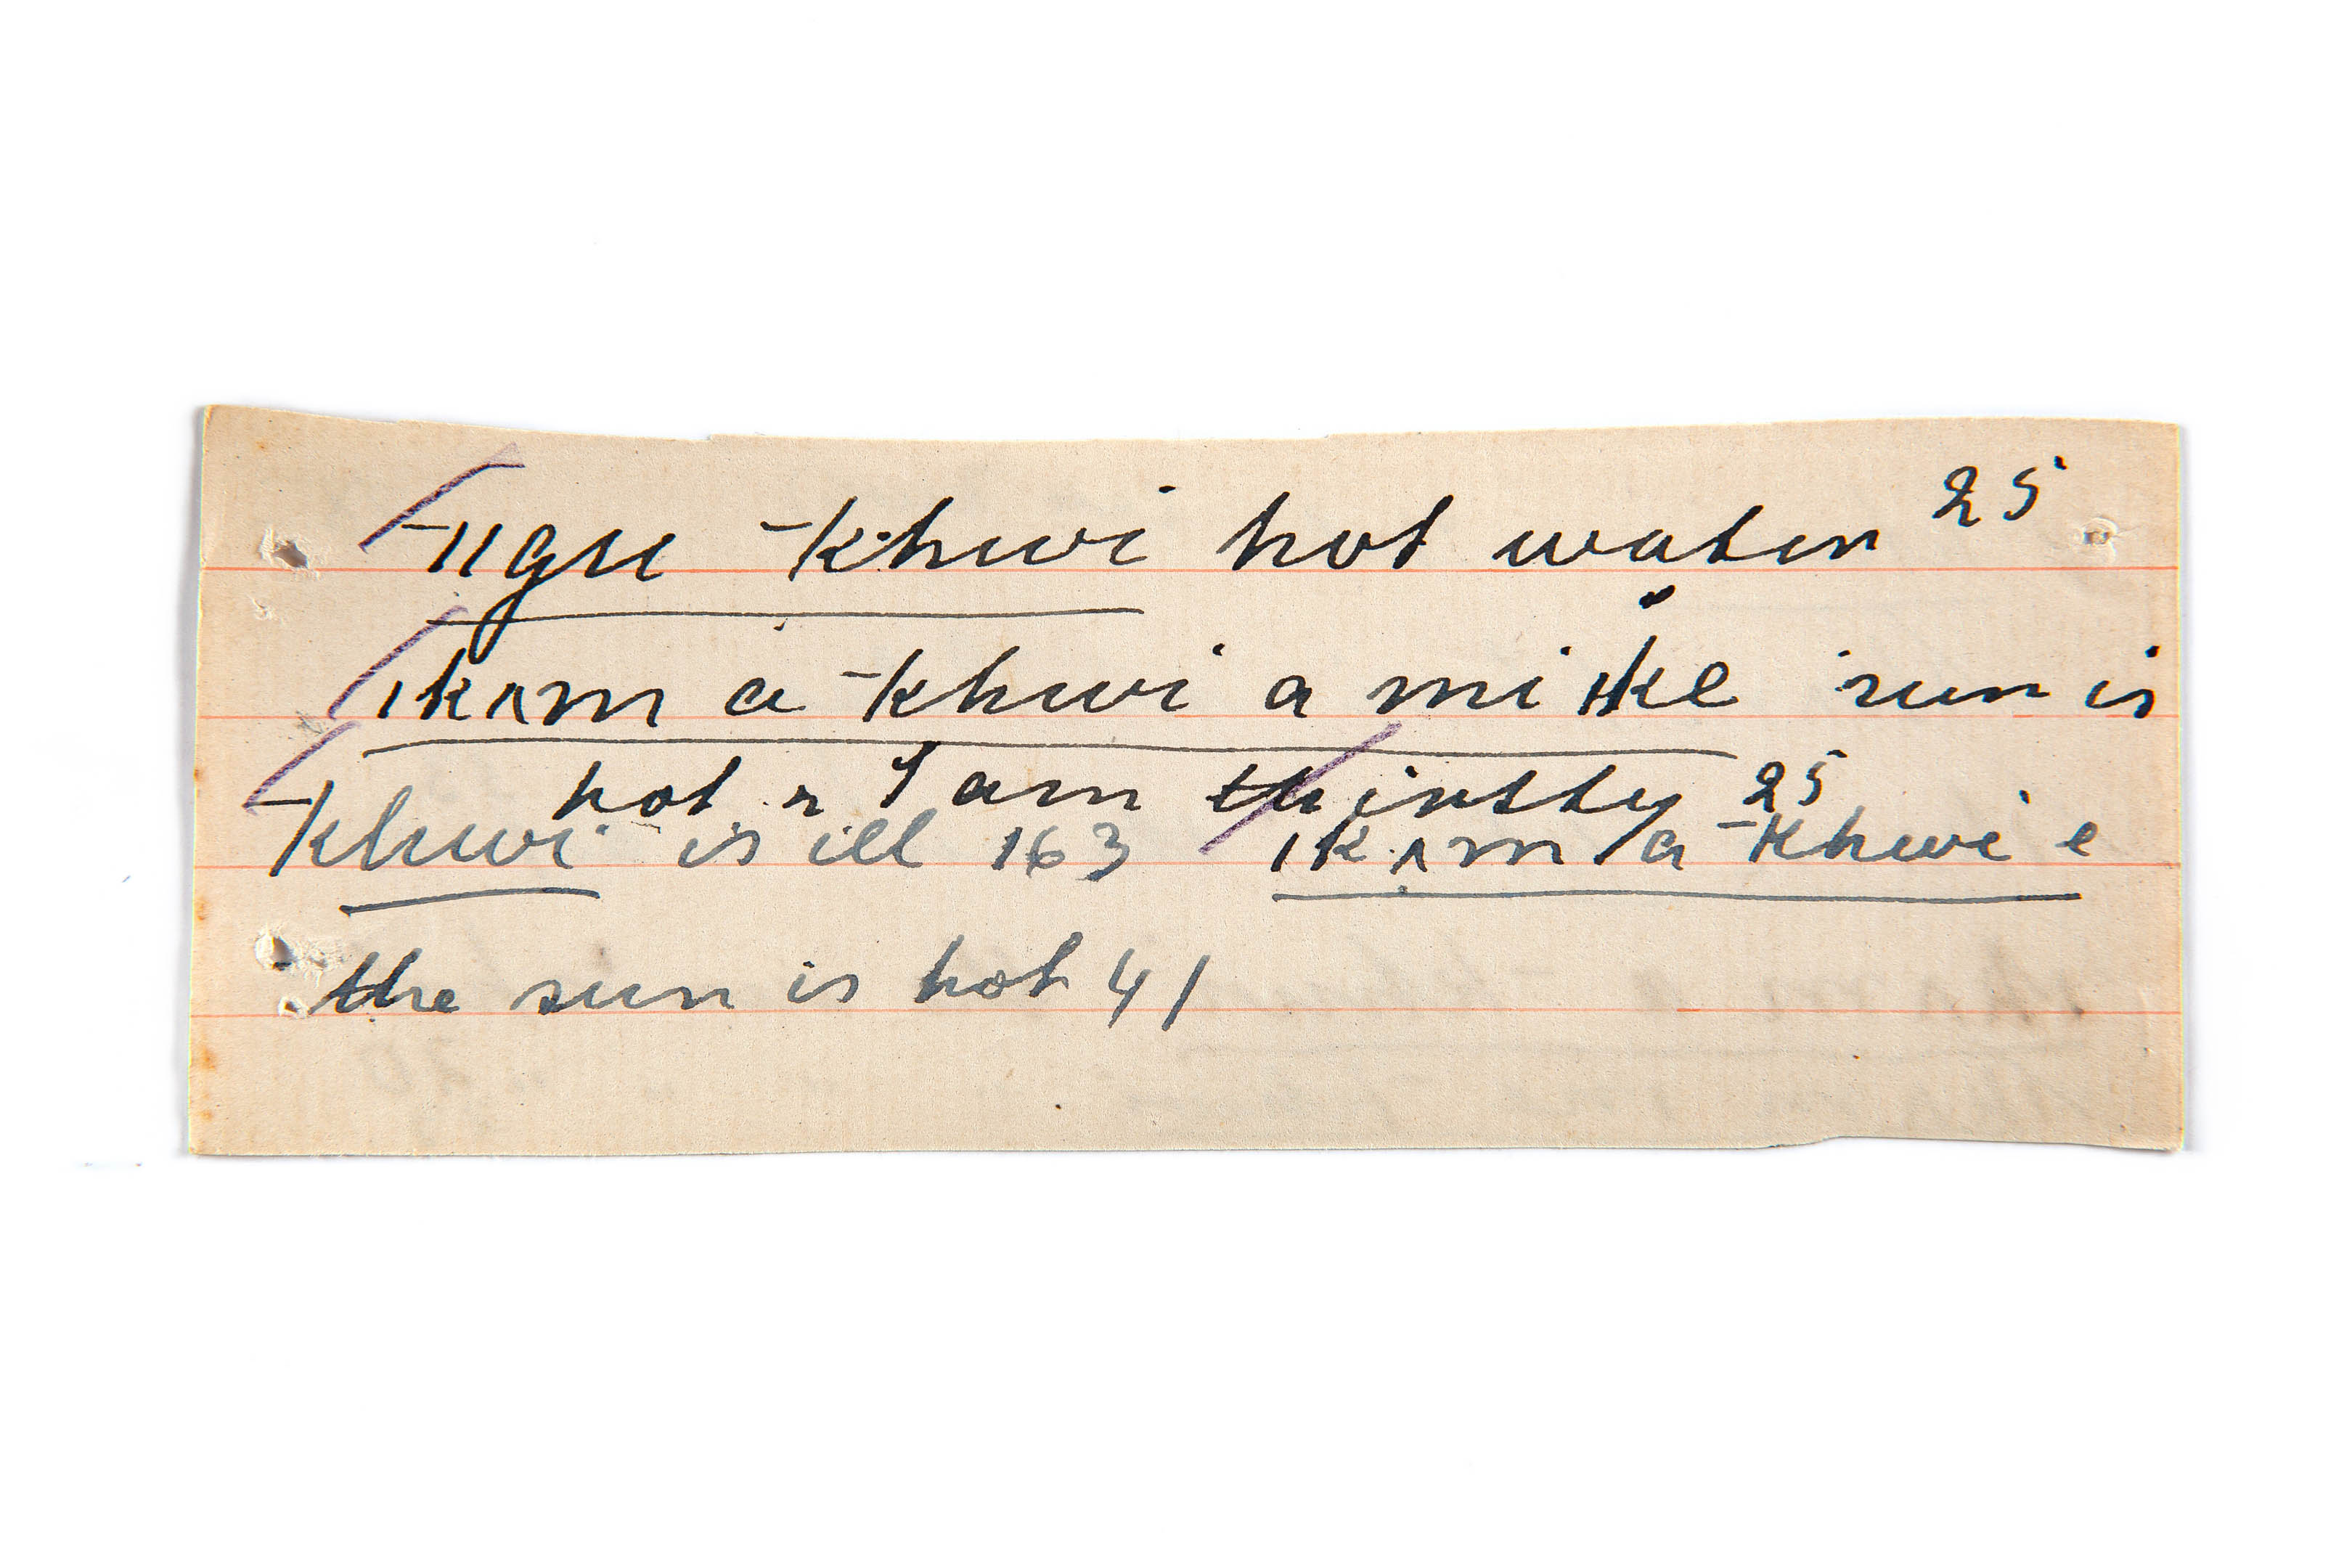 ‾ǁgu ‾khwi hot water 25
ǀkʌm a ‾khwi a mi ǁke sun is
hot & I am thirsty 25
‾khwi is ill 163 ǀkʌm a ‾khwi e
the sun is hot 41